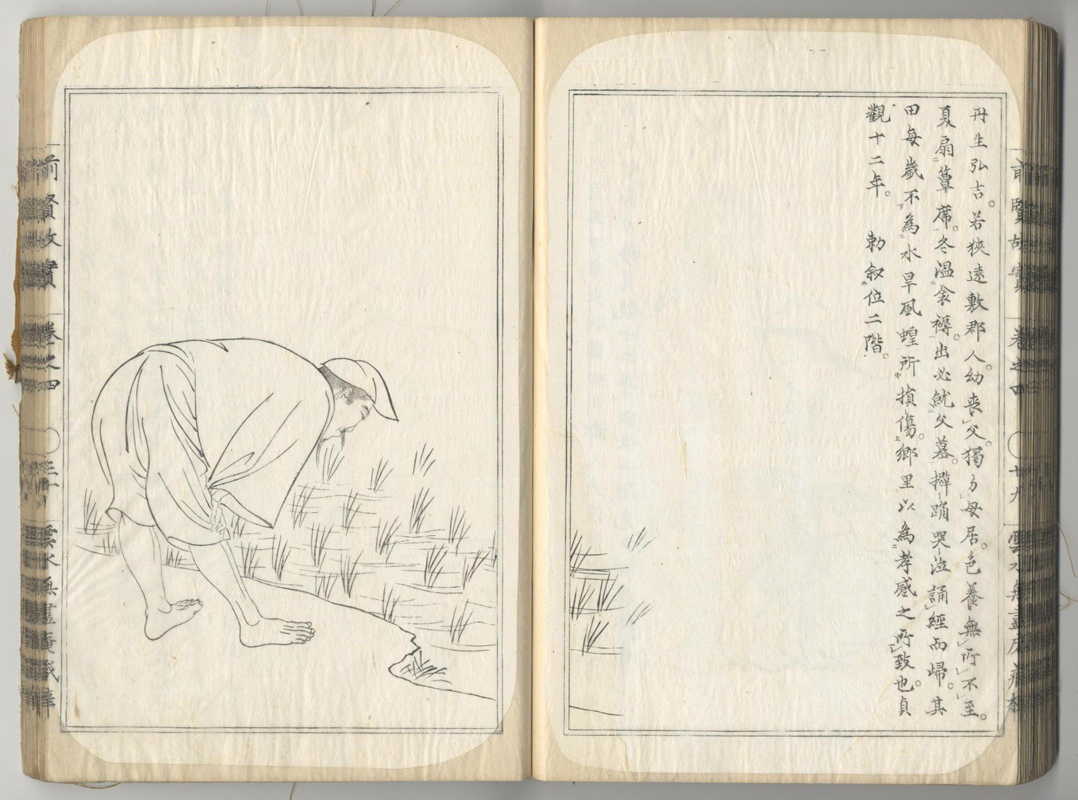 丹生弘吉。若狹遠敷郡人。幼喪父。獨与母居。色養無所不至。
夏扇簟席。冬温衾褥。出必就父墓。擗踊哭泣誦經而歸。其
田每歲不為水旱風蝗所損傷。鄉里以為孝感之所致也。貞
觀十二年。 勅敘位二階。
前賢故實 卷之四 〇 廿九 雲水無盡庵藏
前賢故實 卷之四 〇 三十 雲水無盡庵藏